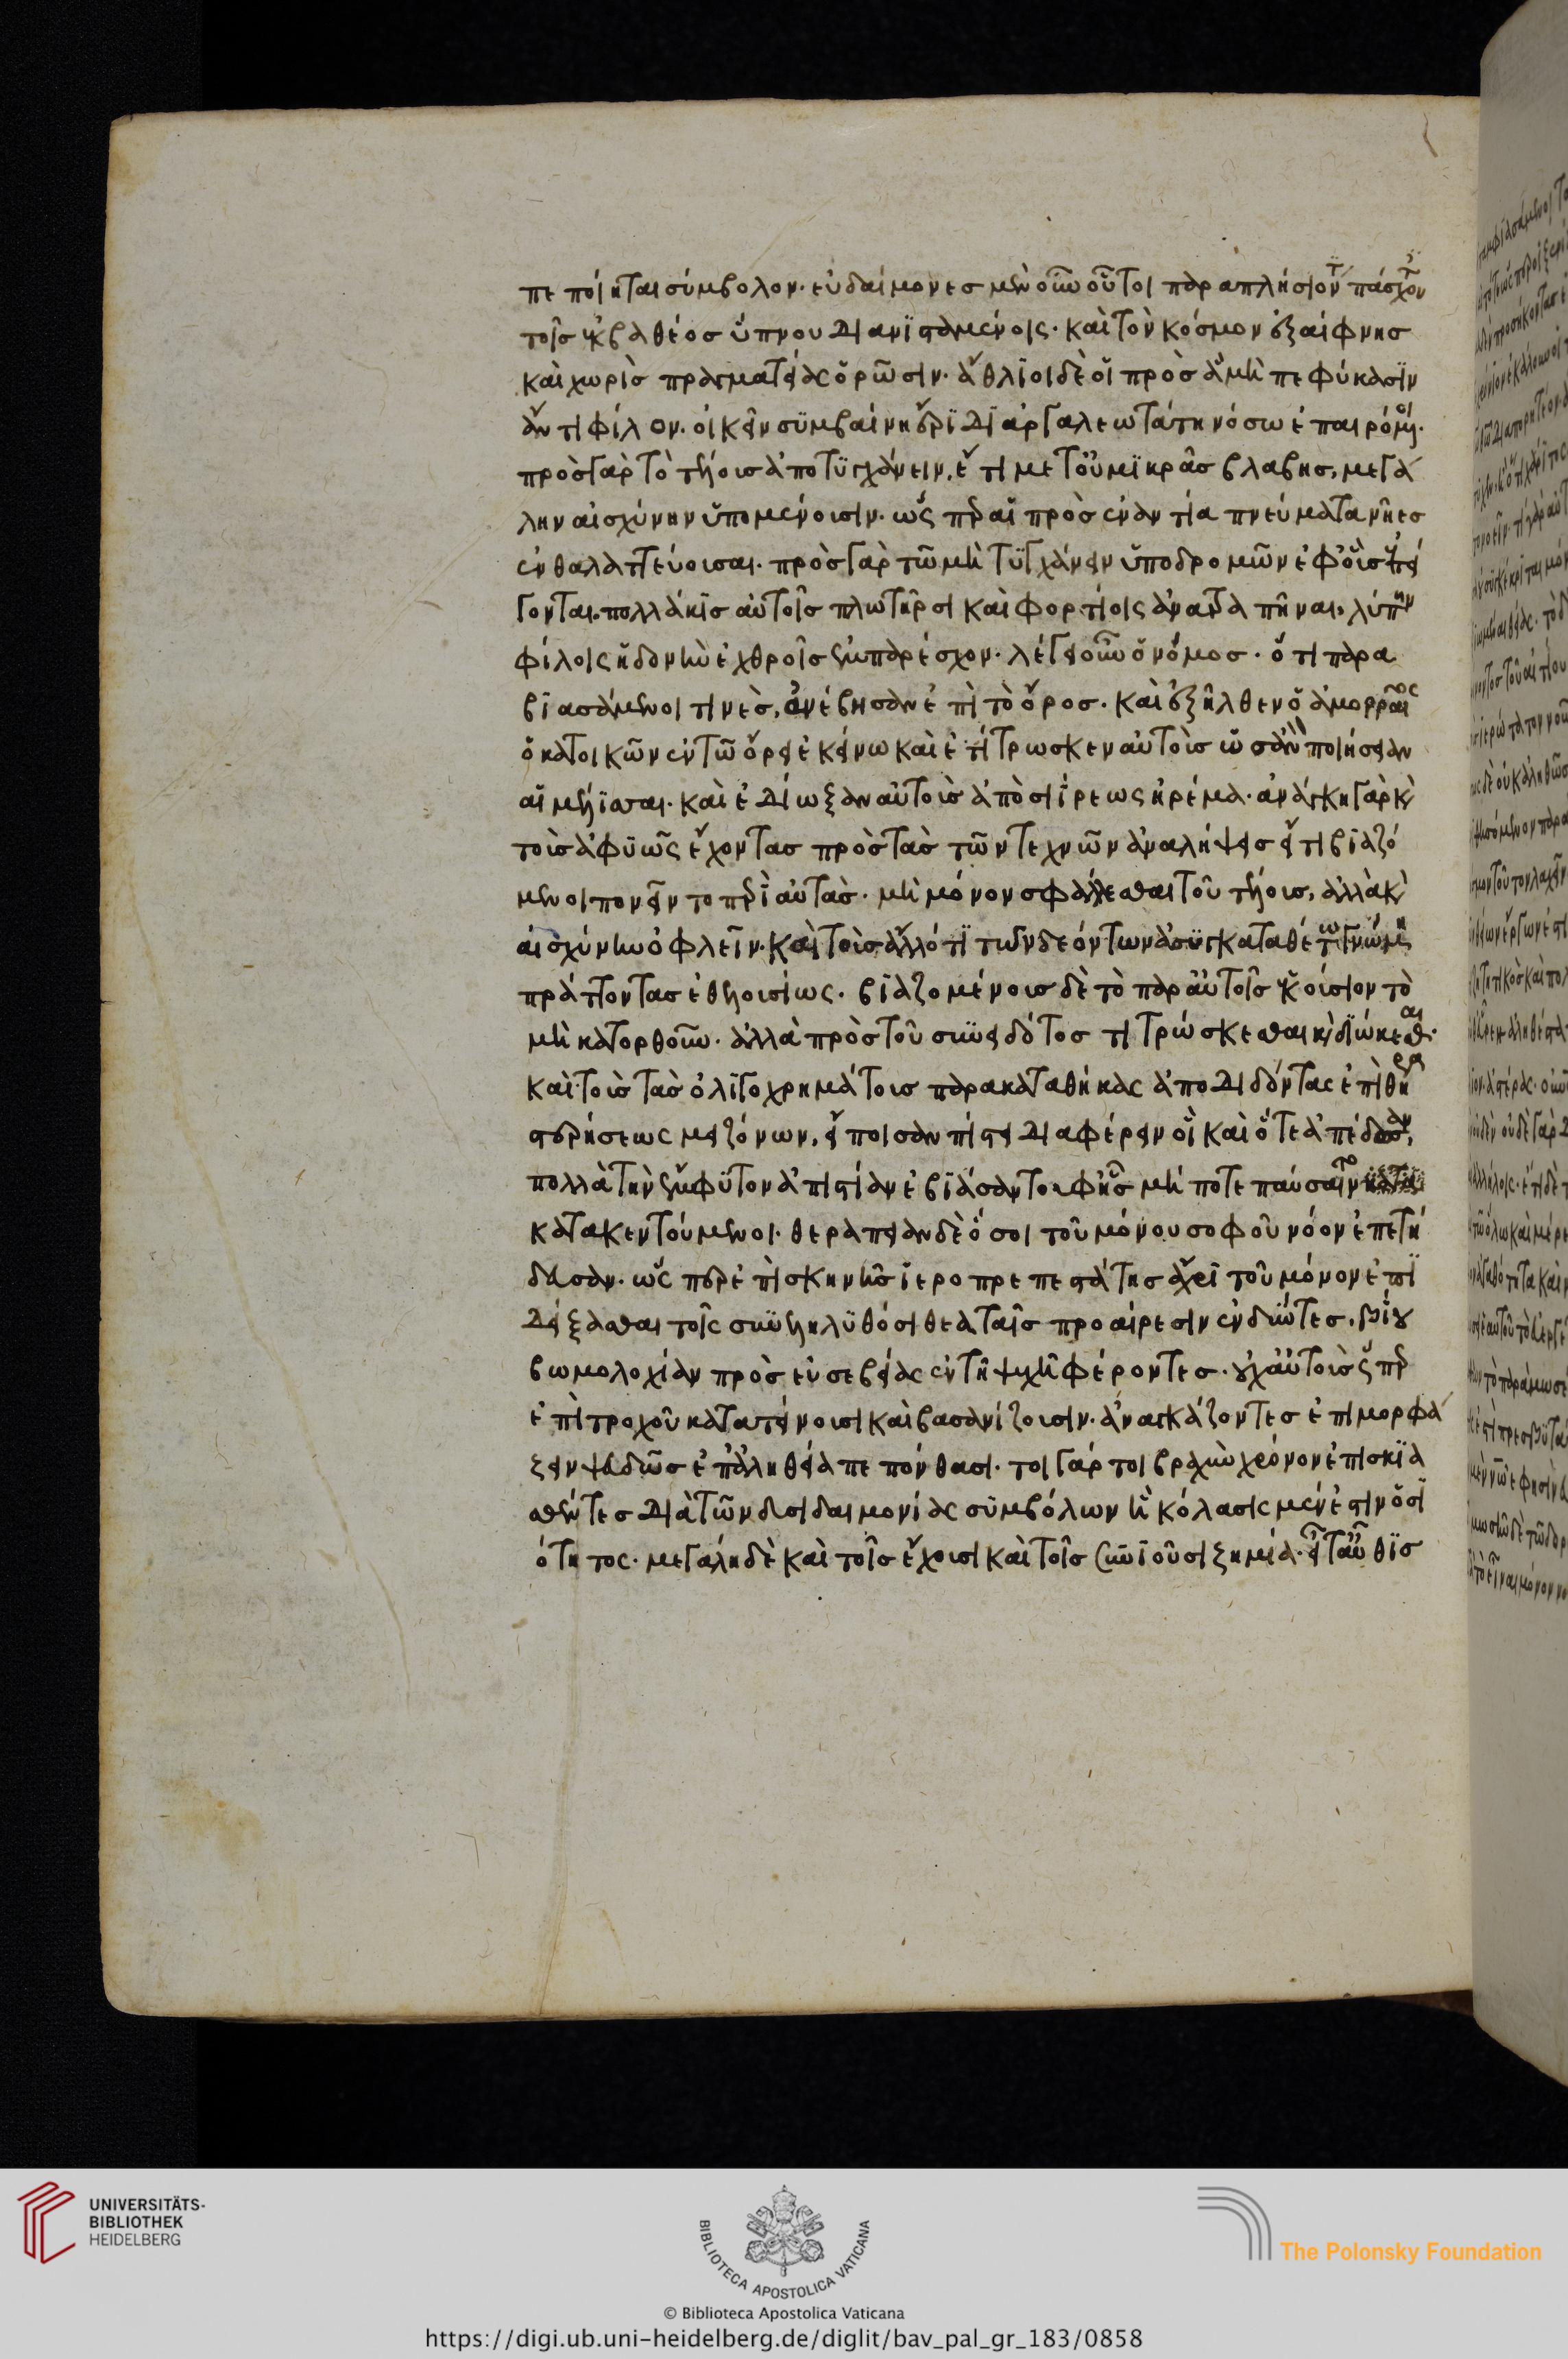 πεποίηται σύμβολον· εὐδαίμονες μὲν οὖν οὗτοι παραπλήσιόν τι πάσχοντ
τοῖς ἐκ βαθέος ὕπνου διανϊσταμένοις· καὶ τὸν κόσμον ἐξαίφνης
καὶ χωρὶς πραγματείας ὁρῶσιν· ἄθλϊοι δὲ οἱ πρὸς ἃ μὴ πεφύκασϊν
ἀντιφίλον. οἰκεῖν σϋμβαίνη ἔρϊδϊ ἀργαλεωτάτη νόσω ἐπαιρόμοι·
πρὸς γὰρ τὸ τέλους ἀποτϋγχάνειν, ἔτι μετ' οὐ μϊκρᾶς βλαβης, μεγά
λην αἰσχύνην ὑπομένουσιν· ὥσπερ αἱ πρὸς ἐναντία πνεύματα νῆες
ἐνθαλαττεύουσαι· πρὸς γὰρ τῶ μὴ τϋγχάνειν ὑποδρομῶν ἐφ' οὓς ἐπεί
γονται. πολλάκϊς αὐτοῖς πλωτῆρσι καὶ φορτίοις ἀνατραπῆναι, λύπην
φίλοις ἡδονὴν ἐχθροῖς συμπαρέσχον· λέγει οὖν ὁ νόμος· ὅτι παρα
βϊασάμενοι τινὲς, ἀνέβησαν ἐπὶ τὸ ὄρος· καὶ ἐξῆλθεν ὁ ἀμορραῖος
ὁ κατοικῶν ἐν τῶ ὄρει ἐκείνω καὶ ἐτίτρωσκεν αὐτοὺς ὡσὰν ποιήσειαν
αἱ μέλϊσσαι· καὶ ἐδίωξαν αὐτοὺς ἀπὸ σιΐρεως ἠρέμα· ἀνάγκη γὰρ καὶ
τοὺς ἀφϋῶς ἔχοντας πρὸς τὰς τῶν τεχνιῶν ἀναλήψεις εἴ τι βϊαζό
μενοι πονεῖν το περὶ αὐτὰς· μὴ μόνον σφάλλεσθαι τοῦ τέλους, ἀλλὰ καὶ
αἰσχύνην ὀφλεῖν· καὶ τοὺς ἄλλό τϊ τῶν δεόντων ἀσϋγκαταθέτω γνώμη
πράττοντας ἐθελουσίως· βϊαζομένους δὲ τὸ παρ αὐτοῖς ἑκούσιον τὸ
μὴ κατορθοῦν· ἀλλὰ πρὸς τοῦ συνειδότος τιτρώσκεσθαι καὶ δϊώκεσθαι·
καὶ τοὺς τὰς ὀλϊγοχρημάτους παρακαταθήκας ἀποδιδόντας ἐπὶ θήρα
στερήσεως μειζόνων, εἴποις ἂν πίστει διαφέρειν οἳ καὶ ὅτε ἀπέδοσαν,
πολλὰ τὴν ξύμφϋτον ἀπιστίαν ἐβϊάσαντο. φησὶ μή ποτε παύσαιντο
κατακεντούμενοι· θεραπείαν δὲ ὅσοι τοῦ μόνου σοφοῦ νόον ἐπετή
δευσαν· ὥσπερ ἐπὶ σκηνῆς ἱεροπρεπεστάτης ἄχρϊ τοῦ μόνον ἐπϊ
δείξασθαι τοῖς συνεληλϋθόσι θεαταῖς προαίρεσιν ἐνδϋύτες,
βωμολοχίαν πρὸς εὐσεβείας ἐν τῆ ψυχῆ φέροντες· οὐχ αὑτοὺς ὥσπερ
ἐπὶ τροχοῦ κατατείνουσι καὶ βασανίζουσιν· ἀναγκάζοντες ἐπιμορφά
ζειν ψευδῶς ἐπ' ἀληθεία πεπόνθασι· τοιγάρτοι βραχὺν χρόνον ἐπισκϊα
σθέντες διὰ τῶν δισιδαιμονίας σϋμβόλων ἣ κόλασις μέν ἐστιν ὁσϊ
ότητος· μεγάλη δὲ καὶ τοῖς ἔχουσι καὶ τοῖς συνϊοῦσι ζημία· εἶτ' αὖθϊς
UNIVERSITÄTS-
BIBLIOTHEK
HEIDELBERG
BIBLIOTECA APOSTOLICA VATICANA
The Polonsky Foundation
© Biblioteca Apostolica Vaticana
https://digi.ub.uni-heidelberg.de/diglit/bav_pal_gr_183/0858